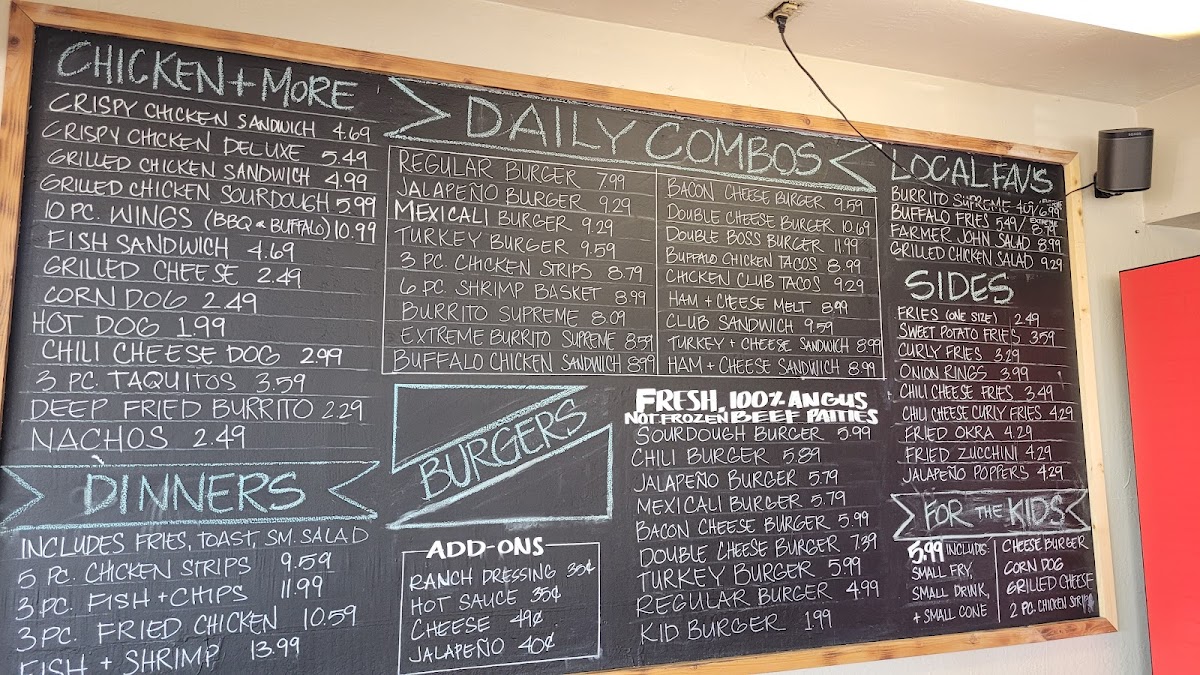 CHICKEN + MORE
CRISPY CHICKEN SANDWICH 4.69
CRISPY CHICKEN DELUXE 5.49
GRILLED CHICKEN SANDWICH 4.99
GRILLED CHICKEN SOURDOUGH 5.99
10 PC. WINGS (BBQ & BUFFALO) 10.99
FISH SANDWICH 4.69
GRILLED CHEESE 2.49
CORN DOG 2.49
HOT DOG 1.99
CHILI CHEESE DOG 2.99
3 PC. TAQUITOS 3.59
DEEP FRIED BURRITO 2.29
NACHOS 2.49
DINNERS
INCLUDES FRIES, TOAST, SM. SALAD
5 PC. CHICKEN STRIPS 9.59
3 PC. FISH + CHIPS 11.99
3 PC. FRIED CHICKEN 10.59
FISH + SHRIMP 13.99
DAILY COMBOS
REGULAR BURGER 7.99
JALAPEÑO BURGER 9.29
MEXICALI BURGER 9.29
TURKEY BURGER 9.59
3 PC. CHICKEN STRIPS 8.79
6 PC. SHRIMP BASKET 8.99
BURRITO SUPREME 8.09
EXTREME BURRITO SUPREME 8.59
BUFFALO CHICKEN SANDWICH 8.99
BACON CHEESE BURGER 9.59
DOUBLE CHEESE BURGER 10.69
DOUBLE BOSS BURGER 11.99
BUFFALO CHICKEN TACOS 8.99
CHICKEN CLUB TACOS 9.29
HAM + CHEESE MELT 8.99
CLUB SANDWICH 9.59
TURKEY + CHEESE SANDWICH 8.99
HAM + CHEESE SANDWICH 8.99
BURGERS
ADD-ONS
RANCH DRESSING 35¢
HOT SAUCE 35¢
CHEESE 49¢
JALAPEÑO 40¢
FRESH, 100% ANGUS
NOT FROZEN BEEF PATTIES
SOURDOUGH BURGER 5.99
CHILI BURGER 5.89
JALAPEÑO BURGER 5.79
MEXICALI BURGER 5.79
BACON CHEESE BURGER 5.99
DOUBLE CHEESE BURGER 7.39
TURKEY BURGER 5.99
REGULAR BURGER 4.99
KID BURGER 1.99
LOCAL FAVS
BURRITO SUPREME 6.99
BUFFALO FRIES 5.49 / EXTREME 8.79
FARMER JOHN SALAD 8.99
GRILLED CHICKEN SALAD 9.29
SIDES
FRIES (ONE SIZE) 2.49
SWEET POTATO FRIES 3.59
CURLY FRIES 3.29
ONION RINGS 3.99
CHILI CHEESE FRIES 3.49
CHILI CHEESE CURLY FRIES 4.29
FRIED OKRA 4.29
FRIED ZUCCHINI 4.29
JALAPEÑO POPPERS 4.29
FOR THE KIDS
5.99 INCLUDES:
SMALL FRY,
SMALL DRINK,
+ SMALL CONE
CHEESE BURGER
CORN DOG
GRILLED CHEESE
2 PC. CHICKEN STRIPS